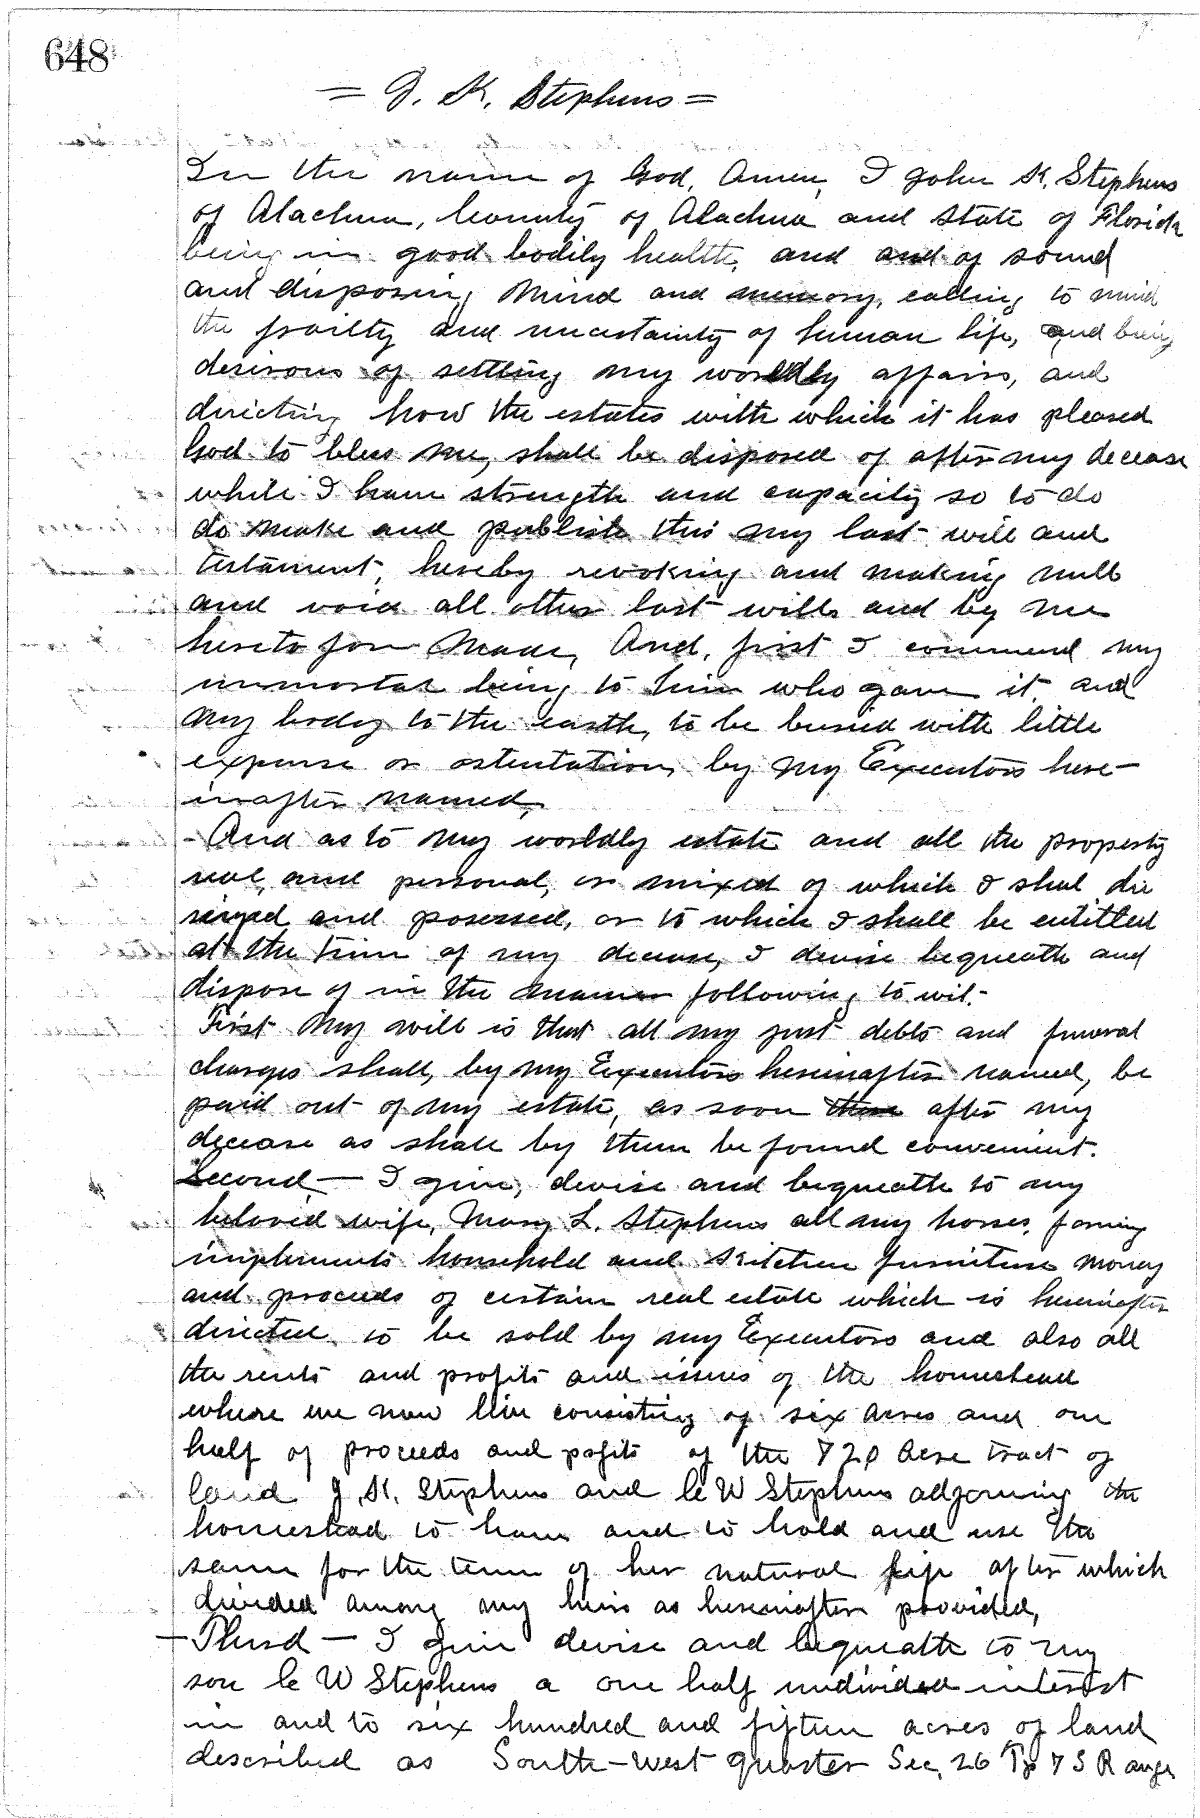 648
= J. K. Stephens =
In the name of God, Amen, I John K. Stephens
of Alachua, County of Alachua and State of Florida
being in good bodily health, and and of sound
and disposing mind and memory, calling to mind
the frailty and uncertainty of human life, and being
desirous of settling my worldly affairs, and
directing how the estates with which it has pleased
God to bless me, shall be disposed of after my decease
while I have strength and capacity so to do
do make and publish this my last will and
testament, hereby revoking and making null
and void all other last wills and by me
hereto fore made, And, first I commend my
immortal being to him who gave it and
my body to the earth, to be buried with little
expense or ostentation, by my Executors here-
inafter named,
- And as to my worldly estate and all the property
real, and personal, or mixed of which I shal die
seized and posessed, or to which I shall be entitled
at the time of my decease, I devise bequeath and
dispose of in the manner following to wit.-
First My will is that all my just debts and funeral
charges shall, by my Executors hereinafter named, be
paid out of my estate, as soon after my
decease as shall by them be found convenient.
Second - I give, devise and bequeath to my
beloved wife, Mary L. Stephens all my horses, farming
implements household and Kitchen furniture money
and proceeds of certain real estate which is hereinafter
directed to be sold by my Executors and also all
the rents and profits and issues of the homestead
where we now live consisting of six acres and one
half of proceeds and pofits of the 720 Acre tract of
land J. K. Stephens and C W Stephens adjorning the
homestead to have and to hold and use the
same for the term of her natural life after which
divided among my heirs as hereinafter provided,
- Third - I give devise and bequeath to my
son C W Stephens a one half undivided interest
in and to six hundred and fifteen acres of land
described as South-West quarter Sec, 26 Tp 7 S Range